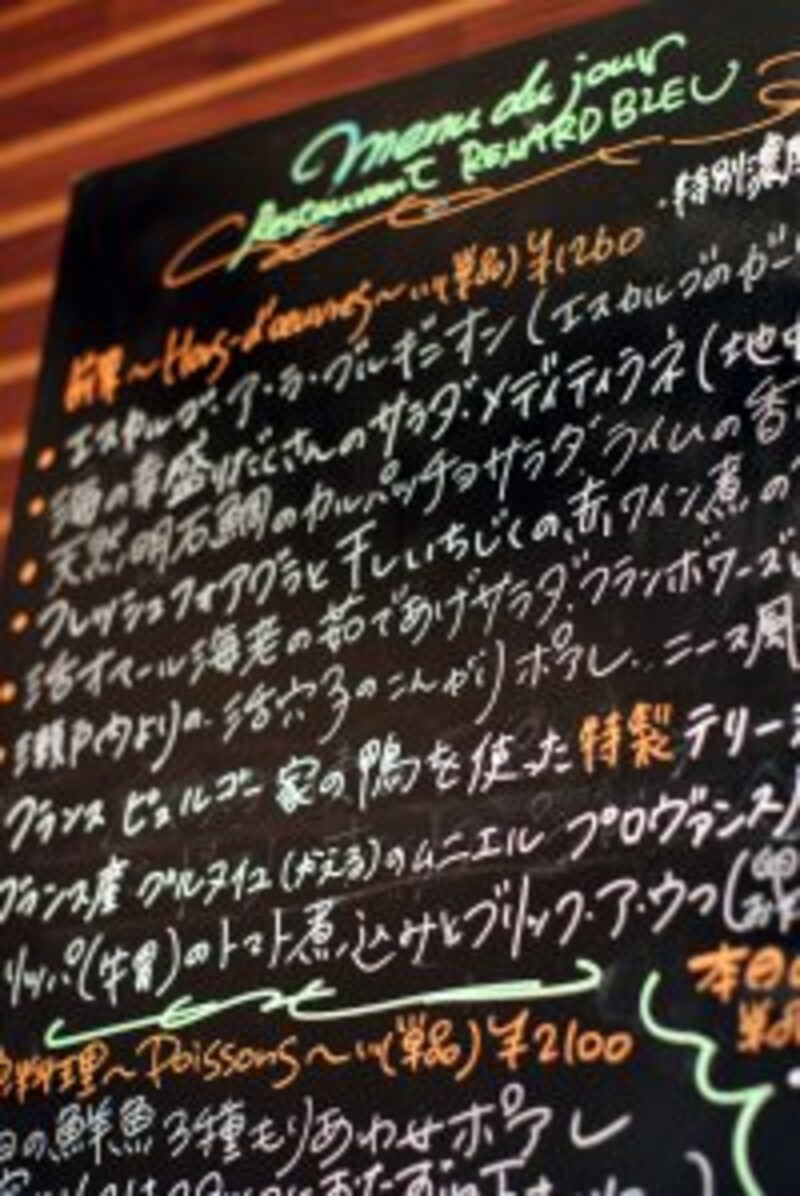 Menu du jour
Restaurant RENARD BLEU
・特別濃厚
前菜～Hors-d'œuvres～…(単品)¥1260
・エスカルゴ・ア・ラ・ブルギニオン(エスカルゴのガー
・海の幸盛りだくさんのサラダ・メディティラネ(地中
・天然明石鯛のカルパッチョサラダ、ライムの香
・フレッシュフォアグラと干しいちじくの赤ワイン煮の
・活オマール海老の茹であげサラダ、フランボワーズ
・瀬戸内よりの活穴子のこんがりポアレ、ニース風
フランスビュルゴー家の鴨を使った特製テリー
フランス産グルヌイユ(かえる)のムニエル プロヴァンス
リッパ(牛胃)のトマト煮込みとブリック・ア・ウフ(卵
料理～Poissons～…(単品)¥2100
本日の
単品
日の鮮魚3種もりあわせポアレ